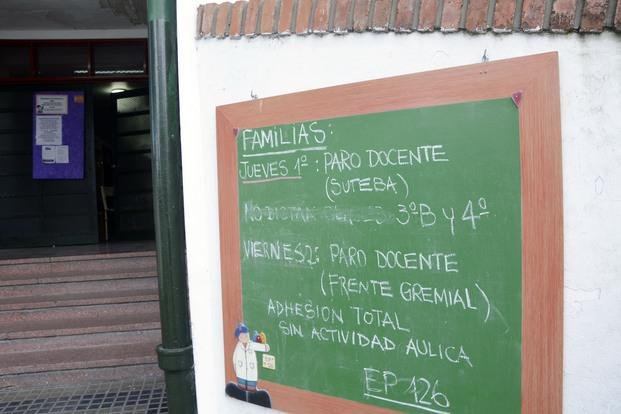 FAMILIAS:
JUEVES 1º: PARO DOCENTE
(SUTEBA)
3ºB y 4º
VIERNES 2: PARO DOCENTE
(FRENTE GREMIAL)
ADHESION TOTAL
SIN ACTIVIDAD AULICA
EP 126